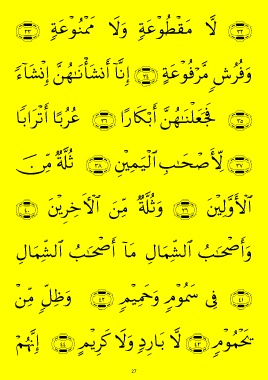 ﴿٣٢﴾ لَّا مَقْطُوعَةٍ وَلَا مَمْنُوعَةٍ ﴿٣٣﴾
وَفُرُشٍ مَّرْفُوعَةٍ ﴿٣٤﴾ إِنَّآ أَنشَأْنَٰهُنَّ إِنشَآءً
﴿٣٥﴾ فَجَعَلْنَٰهُنَّ أَبْكَارًا ﴿٣٦﴾ عُرُبًا أَتْرَابًا
﴿٣٧﴾ لِّأَصْحَٰبِ ٱلْيَمِينِ ﴿٣٨﴾ ثُلَّةٌ مِّنَ
ٱلْأَوَّلِينَ ﴿٣٩﴾ وَثُلَّةٌ مِّنَ ٱلْأَخِرِينَ ﴿٤٠﴾
وَأَصْحَٰبُ ٱلشِّمَالِ مَآ أَصْحَٰبُ ٱلشِّمَالِ
﴿٤١﴾ فِى سَمُومٍ وَحَمِيمٍ ﴿٤٢﴾ وَظِلٍّ مِّن
يَحْمُومٍ ﴿٤٣﴾ لَّا بَارِدٍ وَلَا كَرِيمٍ ﴿٤٤﴾ إِنَّهُمْ
27